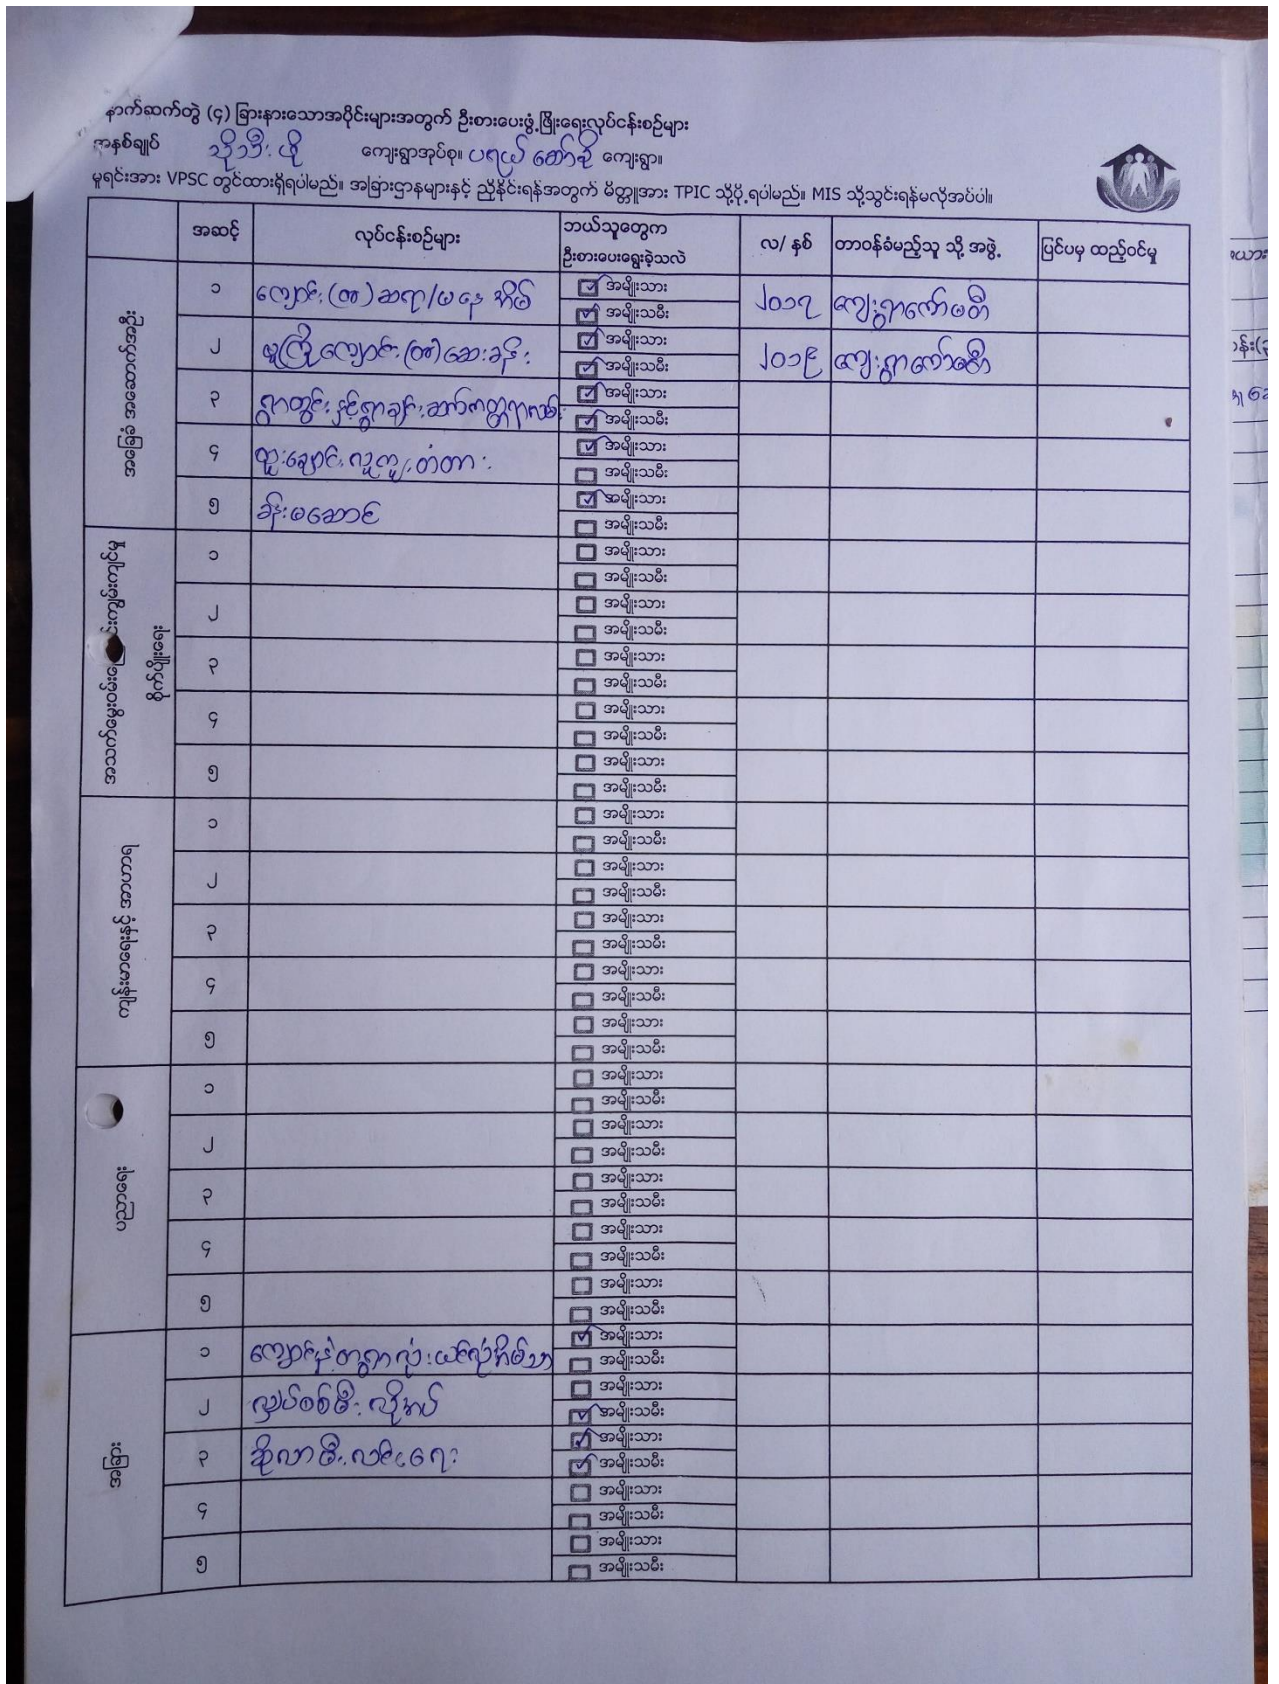 နောက်ဆက်တွဲ (၄) ခြားနားသောအပိုင်းများအတွက် ဦးစားပေးဖွံ့ဖြိုးရေးလုပ်ငန်းစဉ်များ
အနှစ်ချုပ် သိုသီးဖို ကျေးရွာအုပ်စု။ ပရယ်ဆော်ခို ကျေးရွာ။
မူရင်းအား VPSC တွင်ထားရှိရပါမည်။ အခြားဌာနများနှင့် ညှိနှိုင်းရန်အတွက် မိတ္တူအား TPIC သို့ပို့ရပါမည်။ MIS သို့သွင်းရန်မလိုအပ်ပါ။
အဆင့် လုပ်ငန်းစဉ်များ ဘယ်သူတွေက ဦးစားပေးရွေးခဲ့သလဲ လ/ နှစ် တာဝန်ခံမည့်သူ သို့ အဖွဲ့ ပြင်ပမှ ထည့်ဝင်မှု
အခြေခံ အဆောက်အဦး
၁ ကျောင်း(တ)ဆရာ/မနေအိမ် အမျိုးသား ၂၀၁၇ ကျေးရွာကော်မတီ
အမျိုးသမီး
၂ မူကြိုကျောင်း(တ)ဆေးခန်း အမျိုးသား ၂၀၁၉ ကျေးရွာကော်မတီ
အမျိုးသမီး
၃ ရွာတွင်းနှင့်ရွာချင်းဆက် အမျိုးသား
အမျိုးသမီး
၄ ထူးချောင်းလူကူးတံတား အမျိုးသား
အမျိုးသမီး
၅ ခန်းမဆောင် အမျိုးသား
အမျိုးသမီး
၁ အမျိုးသား
အမျိုးသမီး
၂ အမျိုးသား
အမျိုးသမီး
၃ အမျိုးသား
အမျိုးသမီး
၄ အမျိုးသား
အမျိုးသမီး
၅ အမျိုးသား
အမျိုးသမီး
၁ အမျိုးသား
အမျိုးသမီး
၂ အမျိုးသား
အမျိုးသမီး
၃ အမျိုးသား
အမျိုးသမီး
၄ အမျိုးသား
အမျိုးသမီး
၅ အမျိုးသား
အမျိုးသမီး
ပညာရေး
၁ အမျိုးသား
အမျိုးသမီး
၂ အမျိုးသား
အမျိုးသမီး
၃ အမျိုးသား
အမျိုးသမီး
၄ အမျိုးသား
အမျိုးသမီး
၅ အမျိုးသား
အမျိုးသမီး
အခြား
၁ အမျိုးသား
အမျိုးသမီး
၂ လျှပ်စစ်မီးလိုအပ် အမျိုးသား
အမျိုးသမီး
၃ ဆိုလာမီးလင်းရေး အမျိုးသား
အမျိုးသမီး
၄ အမျိုးသား
အမျိုးသမီး
၅ အမျိုးသား
အမျိုးသမီး